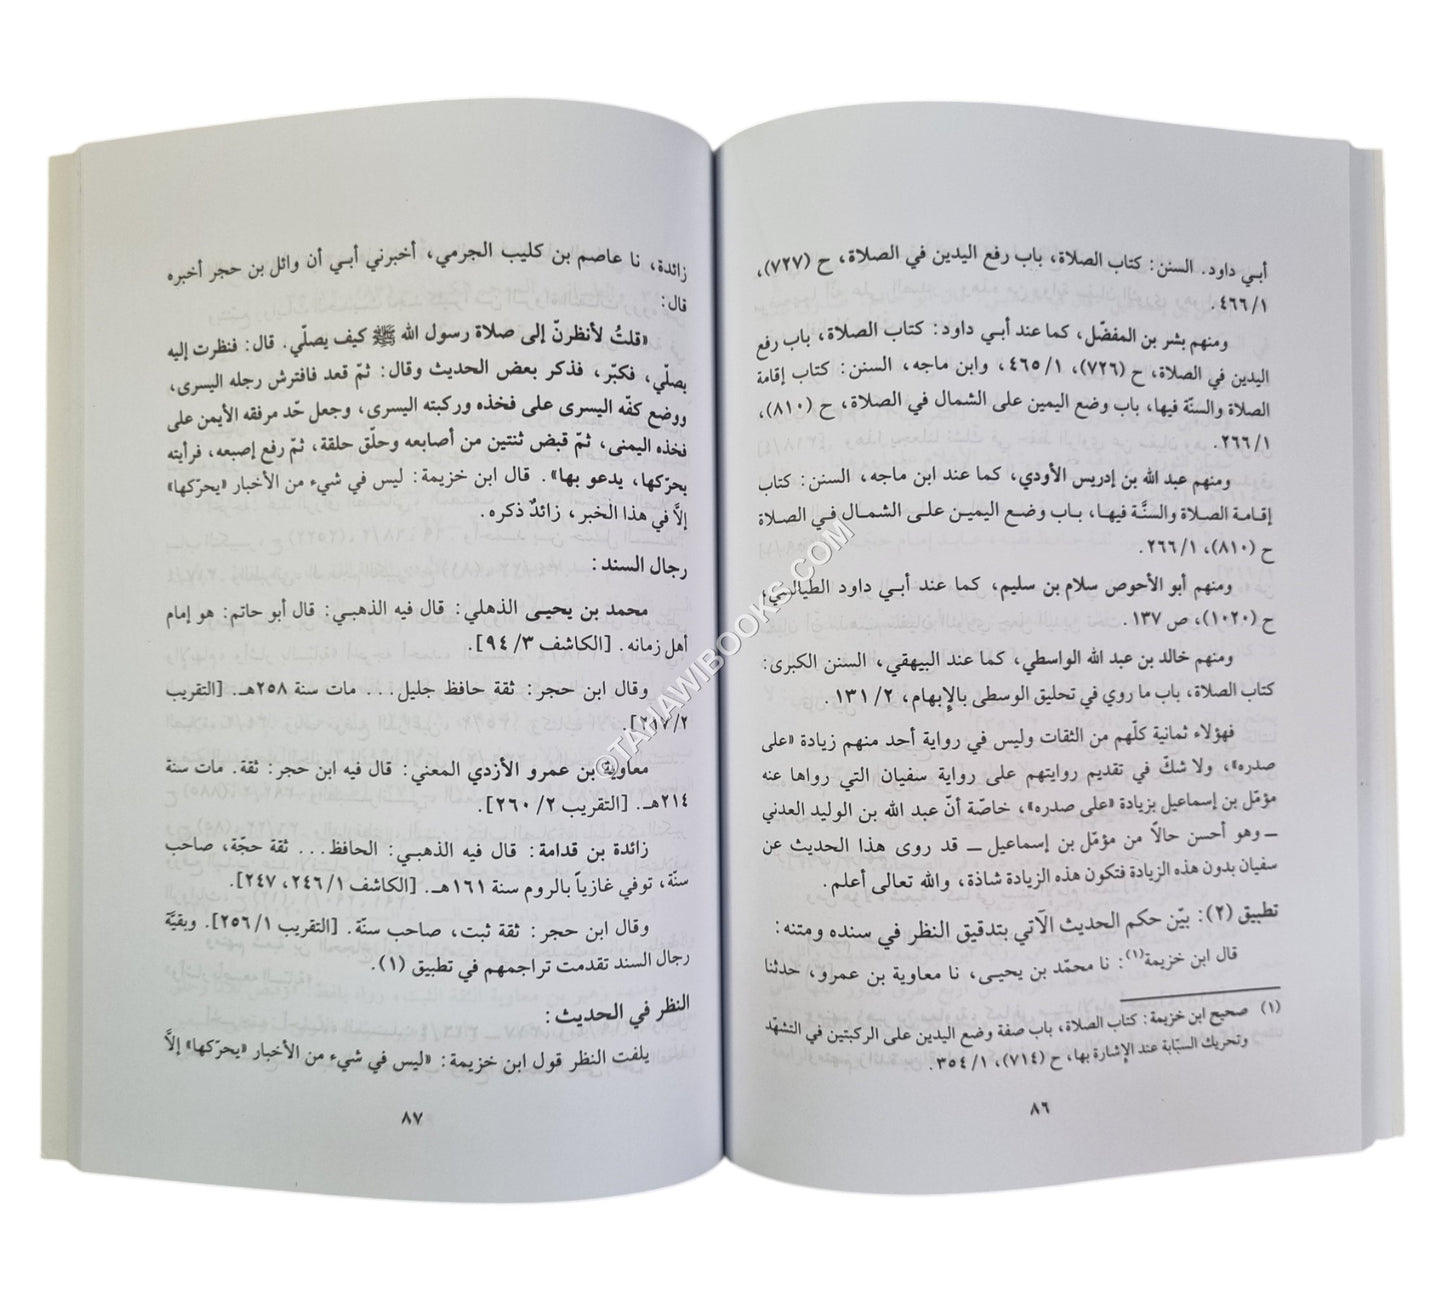 أبي داود. السنن: كتاب الصلاة، باب رفع اليدين في الصلاة، ح (٧٢٧)،
١/ ٤٦٦.
ومنهم بشر بن المفضّل، كما عند أبي داود: كتاب الصلاة، باب رفع
اليدين في الصلاة، ح (٧٢٦)، ١/ ٤٦٥، وابن ماجه، السنن: كتاب إقامة
الصلاة والسنّة فيها، باب وضع اليمين على الشمال في الصلاة، ح (٨١٠)،
١/ ٢٦٦.
ومنهم عبد الله بن إدريس الأودي، كما عند ابن ماجه، السنن: كتاب
إقامة الصلاة والسنَّة فيها، باب وضع اليمين على الشمال في الصلاة
ح (٨١٠)، ١/ ٢٦٦.
ومنهم أبو الأحوص سلام بن سليم، كما عند أبي داود الطيالسي،
ح (١٠٢٠)، ص ١٣٧.
ومنهم خالد بن عبد الله الواسطي، كما عند البيهقي، السنن الكبرى:
كتاب الصلاة، باب ما روي في تحليق الوسطى بالإبهام، ٢/ ١٣١.
فهؤلاء ثمانية كلّهم من الثقات وليس في رواية أحد منهم زيادة «على
صدره»، ولا شكّ في تقديم روايتهم على رواية سفيان التي رواها عنه
مؤمّل بن إسماعيل بزيادة «على صدره»، خاصّة أنّ عبد الله بن الوليد العدني
ــ وهو أحسن حالًا من مؤمّل بن إسماعيل ــ قد روى هذا الحديث عن
سفيان بدون هذه الزيادة فتكون هذه الزيادة شاذة، والله تعالى أعلم.
تطبيق (٢): بيّن حكم الحديث الآتي بتدقيق النظر في سنده ومتنه:
قال ابن خزيمة(١): نا محمّد بن يحيى، نا معاوية بن عمرو، حدثنا
(١) صحيح ابن خزيمة: كتاب الصلاة، باب صفة وضع اليدين على الركبتين في التشهّد
وتحريك السبّابة عند الإشارة بها، ح (٧١٤)، ١/ ٣٥٤.
٨٦
زائدة، نا عاصم بن كليب الجرمي، أخبرني أبي أن وائل بن حجر أخبره
قال:
«قلتُ لأنظرنّ إلى صلاة رسول الله ﷺ كيف يصلّي. قال: فنظرت إليه
يصلّي، فكبّر، فذكر بعض الحديث وقال: ثمّ قعد فافترش رجله اليسرى،
ووضع كفّه اليسرى على فخذه وركبته اليسرى، وجعل حّد مرفقه الأيمن على
فخذه اليمنى، ثمّ قبض ثنتين من أصابعه وحلّق حلقة، ثمّ رفع إصبعه، فرأيته
يحرّكها، يدعو بها». قال ابن خزيمة: ليس في شيء من الأخبار «يحرّكها»
إلاَّ في هذا الخبر، زائدٌ ذكره.
رجال السند:
محمد بن يحيى الذهلي: قال فيه الذهبي: قال أبو حاتم: هو إمام
أهل زمانه. [الكاشف ٣/ ٩٤].
وقال ابن حجر: ثقة حافظ جليل... مات سنة ٢٥٨هـ. [التقريب
٢/ ٢١٧].
معاوية بن عمرو الأزدي المعني: قال فيه ابن حجر: ثقة. مات سنة
٢١٤هـ. [التقريب ٢/ ٢٦٠].
زائدة بن قدامة: قال فيه الذهبي: الحافظ... ثقة حجّة، صاحب
سنّة، توفي غازياً بالروم سنة ١٦١هـ. [الكاشف ١/ ٢٤٦، ٢٤٧].
وقال ابن حجر: ثقة ثبت، صاحب سنّة. [التقريب ١/ ٢٥٦]. وبقيَّة
رجال السند تقدمت تراجمهم في تطبيق (١).
النظر في الحديث:
يلفت النظر قول ابن خزيمة: «ليس في شيء من الأخبار «يحرّكها» إلاَّ
٨٧
©TAHAWIBOOKS.COM